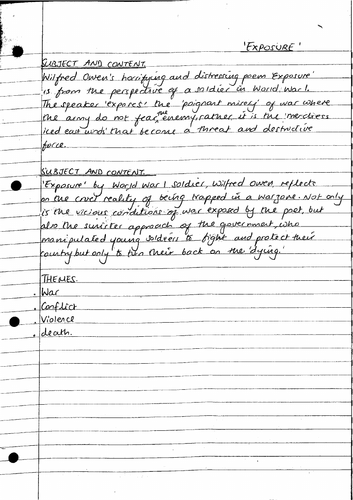 'EXPOSURE'
SUBJECT AND CONTENT.
Wilfred Owen's horrifying and distressing poem 'Exposure'
is from the perspective of a soldier in World War 1.
The speaker 'exposes' the 'poignant misery' of war where
the army do not fear the enemy, rather it is the 'merciless
iced east winds' that become a threat and destructive
force.
SUBJECT AND CONTENT.
'Exposure' by World War 1 soldier, Wilfred Owen reflects
on the cruel reality of being trapped in a warzone. Not only
is the vicious conditions of war exposed by the poet, but
also the sinister approach of the government, who
manipulated young soldiers to fight and protect their
country but only to turn their back on the 'dying.'
THEMES.
. War
. Conflict
. Violence
. death.